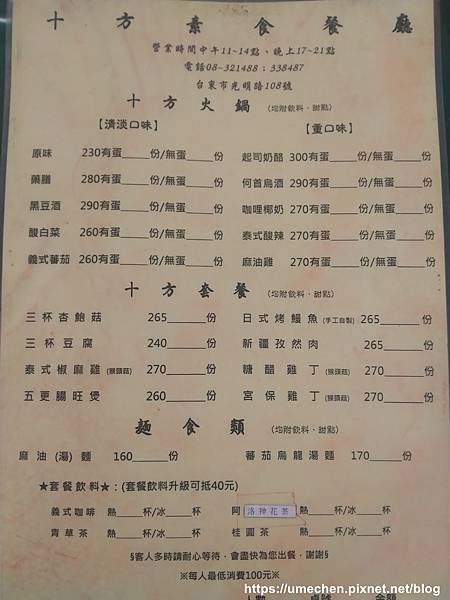 十方素食餐廳
營業時間中午11~14點、晚上17~21點
電話08~321488；338487
台東市光明路108號
十方火鍋 (均附飲料、甜點)
【清淡口味】 【重口味】
原味 230有蛋_____份/無蛋_____份 起司奶酪 300有蛋_____份/無蛋_____份
藥膳 280有蛋_____份/無蛋_____份 何首烏酒 290有蛋_____份/無蛋_____份
黑豆酒 290有蛋_____份/無蛋_____份 咖哩椰奶 270有蛋_____份/無蛋_____份
酸白菜 260有蛋_____份/無蛋_____份 泰式酸辣 270有蛋_____份/無蛋_____份
義式蕃茄 260有蛋_____份/無蛋_____份 麻油雞 270有蛋_____份/無蛋_____份
十方套餐 (均附飲料、甜點)
三杯杏鮑菇 265______份 日式烤鰻魚(手工自製) 265______份
三杯豆腐 240______份 新疆孜然肉 265______份
泰式椒麻雞(猴頭菇) 270______份 糖醋雞丁(猴頭菇) 270______份
五更腸旺煲 260______份 宮保雞丁(猴頭菇) 270______份
麵食類 (均附飲料、甜點)
麻油(湯)麵 160_____份 蕃茄烏龍湯麵 170_____份
★套餐飲料★：(套餐飲料升級可抵40元)
義式咖啡 熱____杯/冰____杯 阿 洛神花茶 熱____杯/冰____杯
青草茶 熱____杯/冰____杯 桂圓茶 熱____杯/冰____杯
§客人多時請耐心等待，會盡快為您出餐，謝謝§
※每人最低消費100元※
人數 桌號 金額
https://umechen.pixnet.net/blog